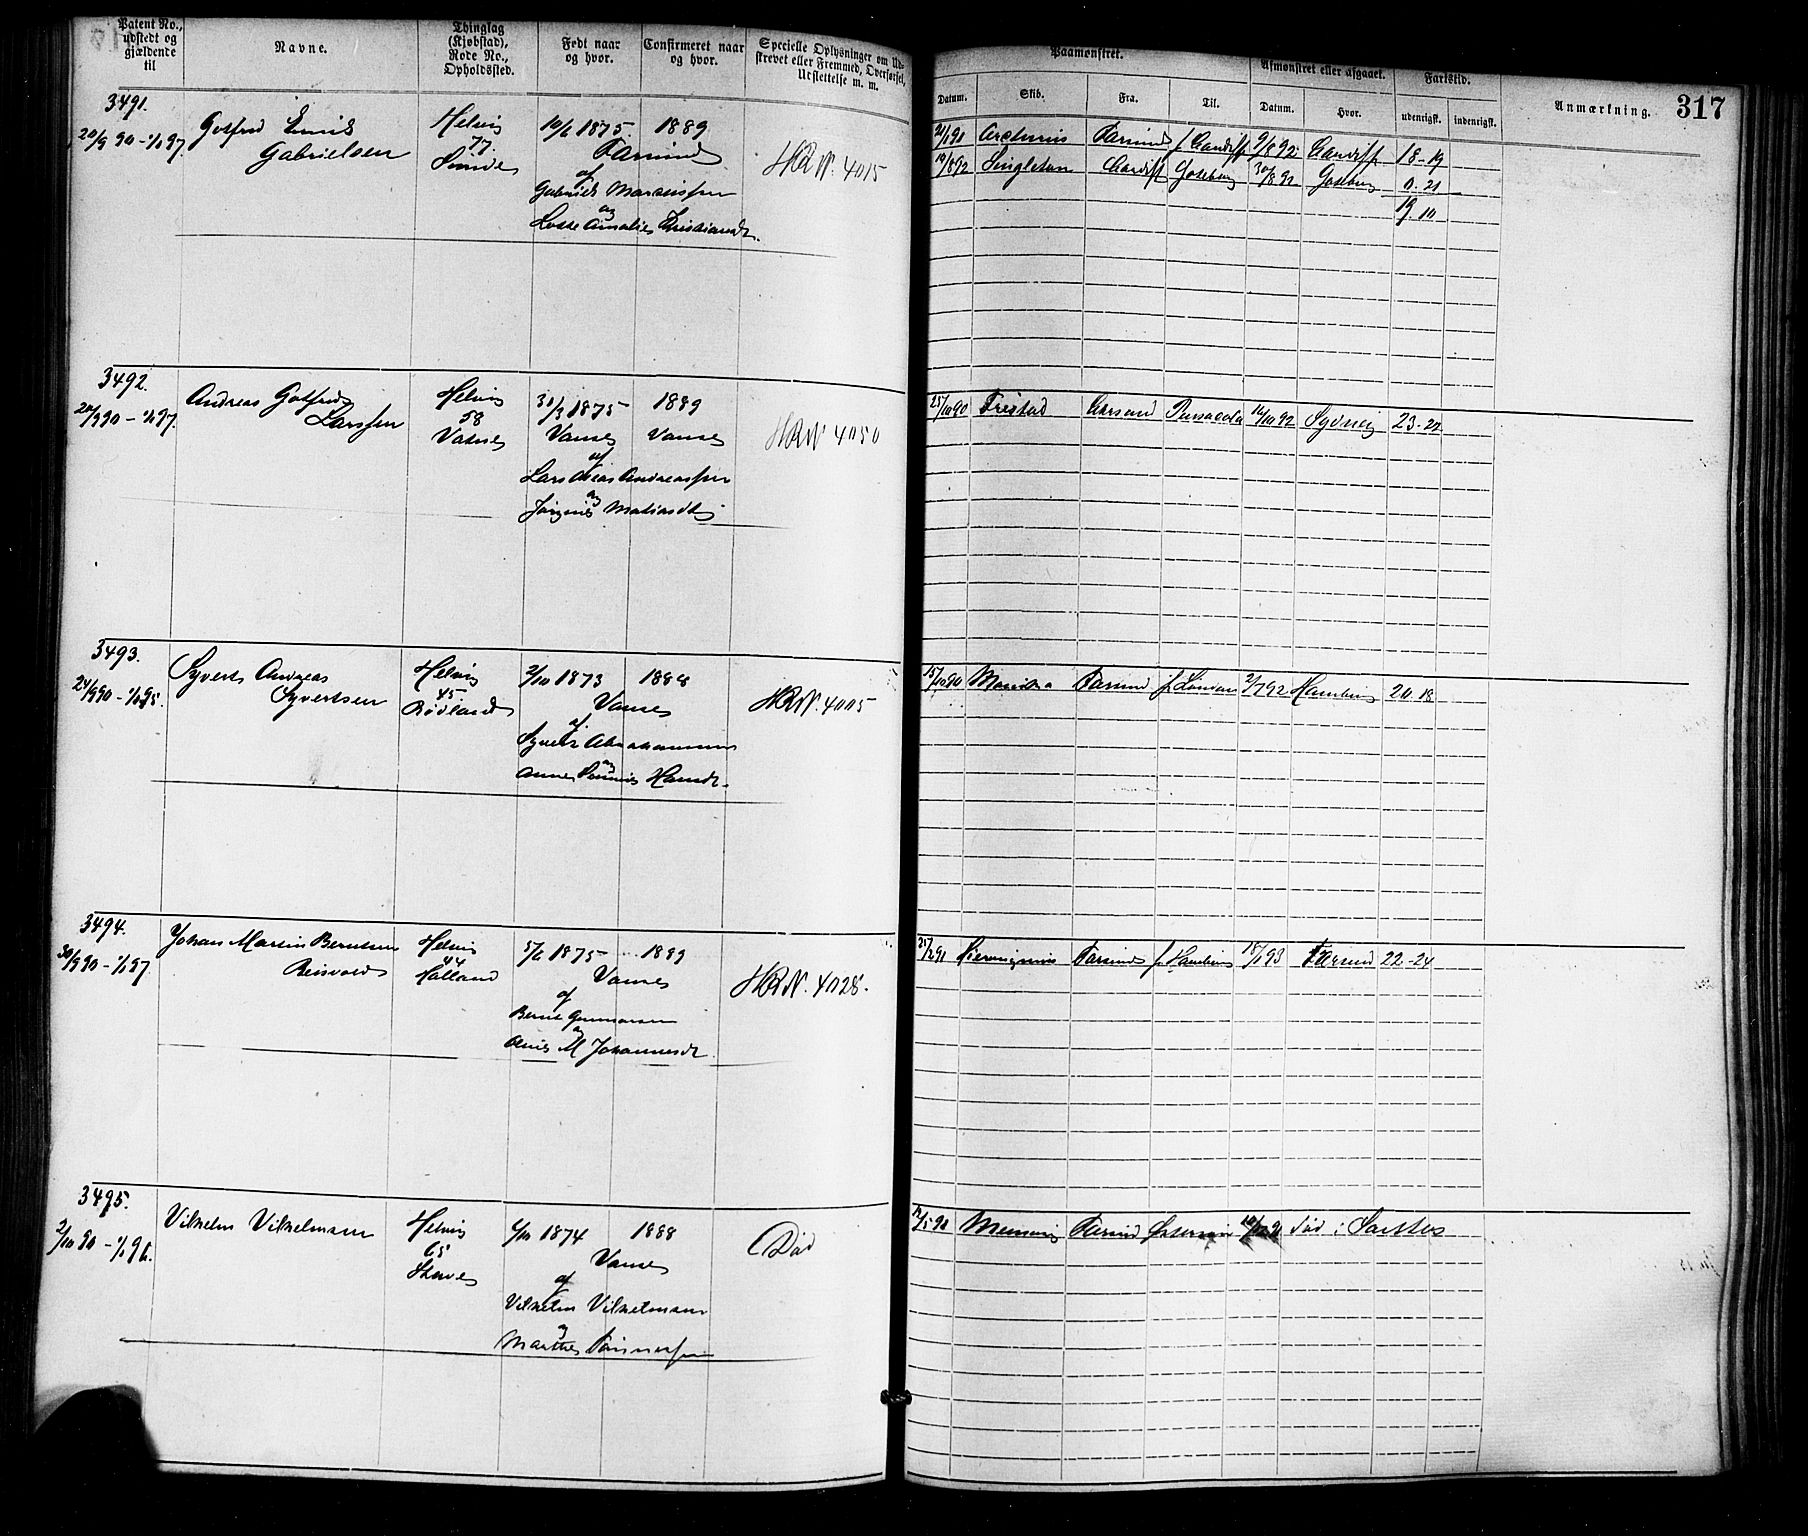 Patent No., udstedt og gjældende til
Navne.
Thinglag (Kjøbstad), Rode No., Opholdssted.
Født naar og hvor.
Confirmeret naar og hvor.
Specielle Oplysninger om Udskrevet eller Fremmed, Overførsel, Udslettelse m. m.
Paamønstret.
Datum. Skib. Fra. Til.
Afmønstret eller afgaaet.
Datum. Hvor.
Fartstid.
udenrigsk. indenrigsk.
Anmærkning.
317
3491.
20/9 90 - 1/1 97.
Gotfred Emil
Gabrielsen
Helvig
77
10/6 1875. 1889
Farsund
af
Gabriel Marcussen
og
Amalie Kristiansdt.
HRN. 4015
Arcturus Farsund f. Cardiff 9/8 92 Cardiff 18-19
19/8 92 Singleton Cardiff Goteborg 30/8 92 Goteborg 0.21
19 10
3492.
20/9 90 - 1/1 97.
Andreas Gotfred
Larssen
Helvig
58
Vatne
31/3 1875 1889
Vanse Vanse
af
Lars Andreassen
og
HRN 4050
25/10 90 Krsand Pensacola 14/10 92 Sydney 23-22
3493.
24/9 90 - 1/1 95.
Syvert Andreas
Syvertsen
Helvig
45
Rødland
2/10 1873 1888
Vanse
af
Syvert Abrahamsen
og
HRN. 4005
15/10 90 Farsund f. London 2/7 92 Hamburg 20.18
3494.
30/9 90 - 1/1 97.
Johan Martin Berntsen
Reisvold
Helvig
44
Halland
5/6 1875 1889
Vanse
af
Bernt Gunnarsen
og
M Johannesdt.
HRN. 4028.
21/2 91 Hieronymus Farsund f. Hamburg 18/1 93 Farsund 22-24
3495.
2/10 90 - 1/1 96.
Vilhelm Vilhelmsen
Helvig
65
6/10 1874 1888
Vanse
af
Vilhelm Vilhelmsen
og
Marthe Tønnessen
Død
Farsund død i